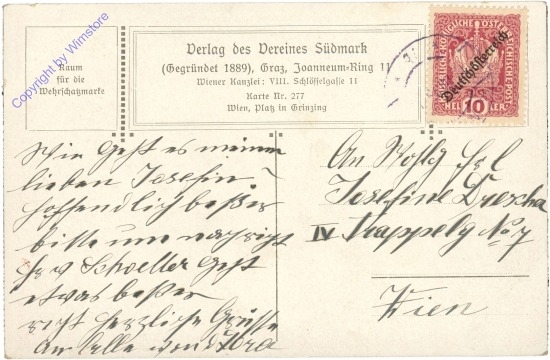 Copyright by Wimstore
Raum
für die
Wehrschatzmarke
Verlag des Vereines Südmark
(Gegründet 1889), Graz, Joanneum-Ring 11
Wiener Kanzlei: VIII. Schlösselgasse 11
Karte Nr. 277
Wien, Platz in Grinzing
KAISERLICHE KÖNIGLICHE ÖSTERREICHISCHE POST
Deutschösterreich
HELLER 10
Wie geht es meiner
lieben Josefin?
hoffendlich beßer
bitte um
Schoeller geht
etwas beßer
herzliche Grüsse
an alle von
An Frl
Josefine
IV No 7
Wien